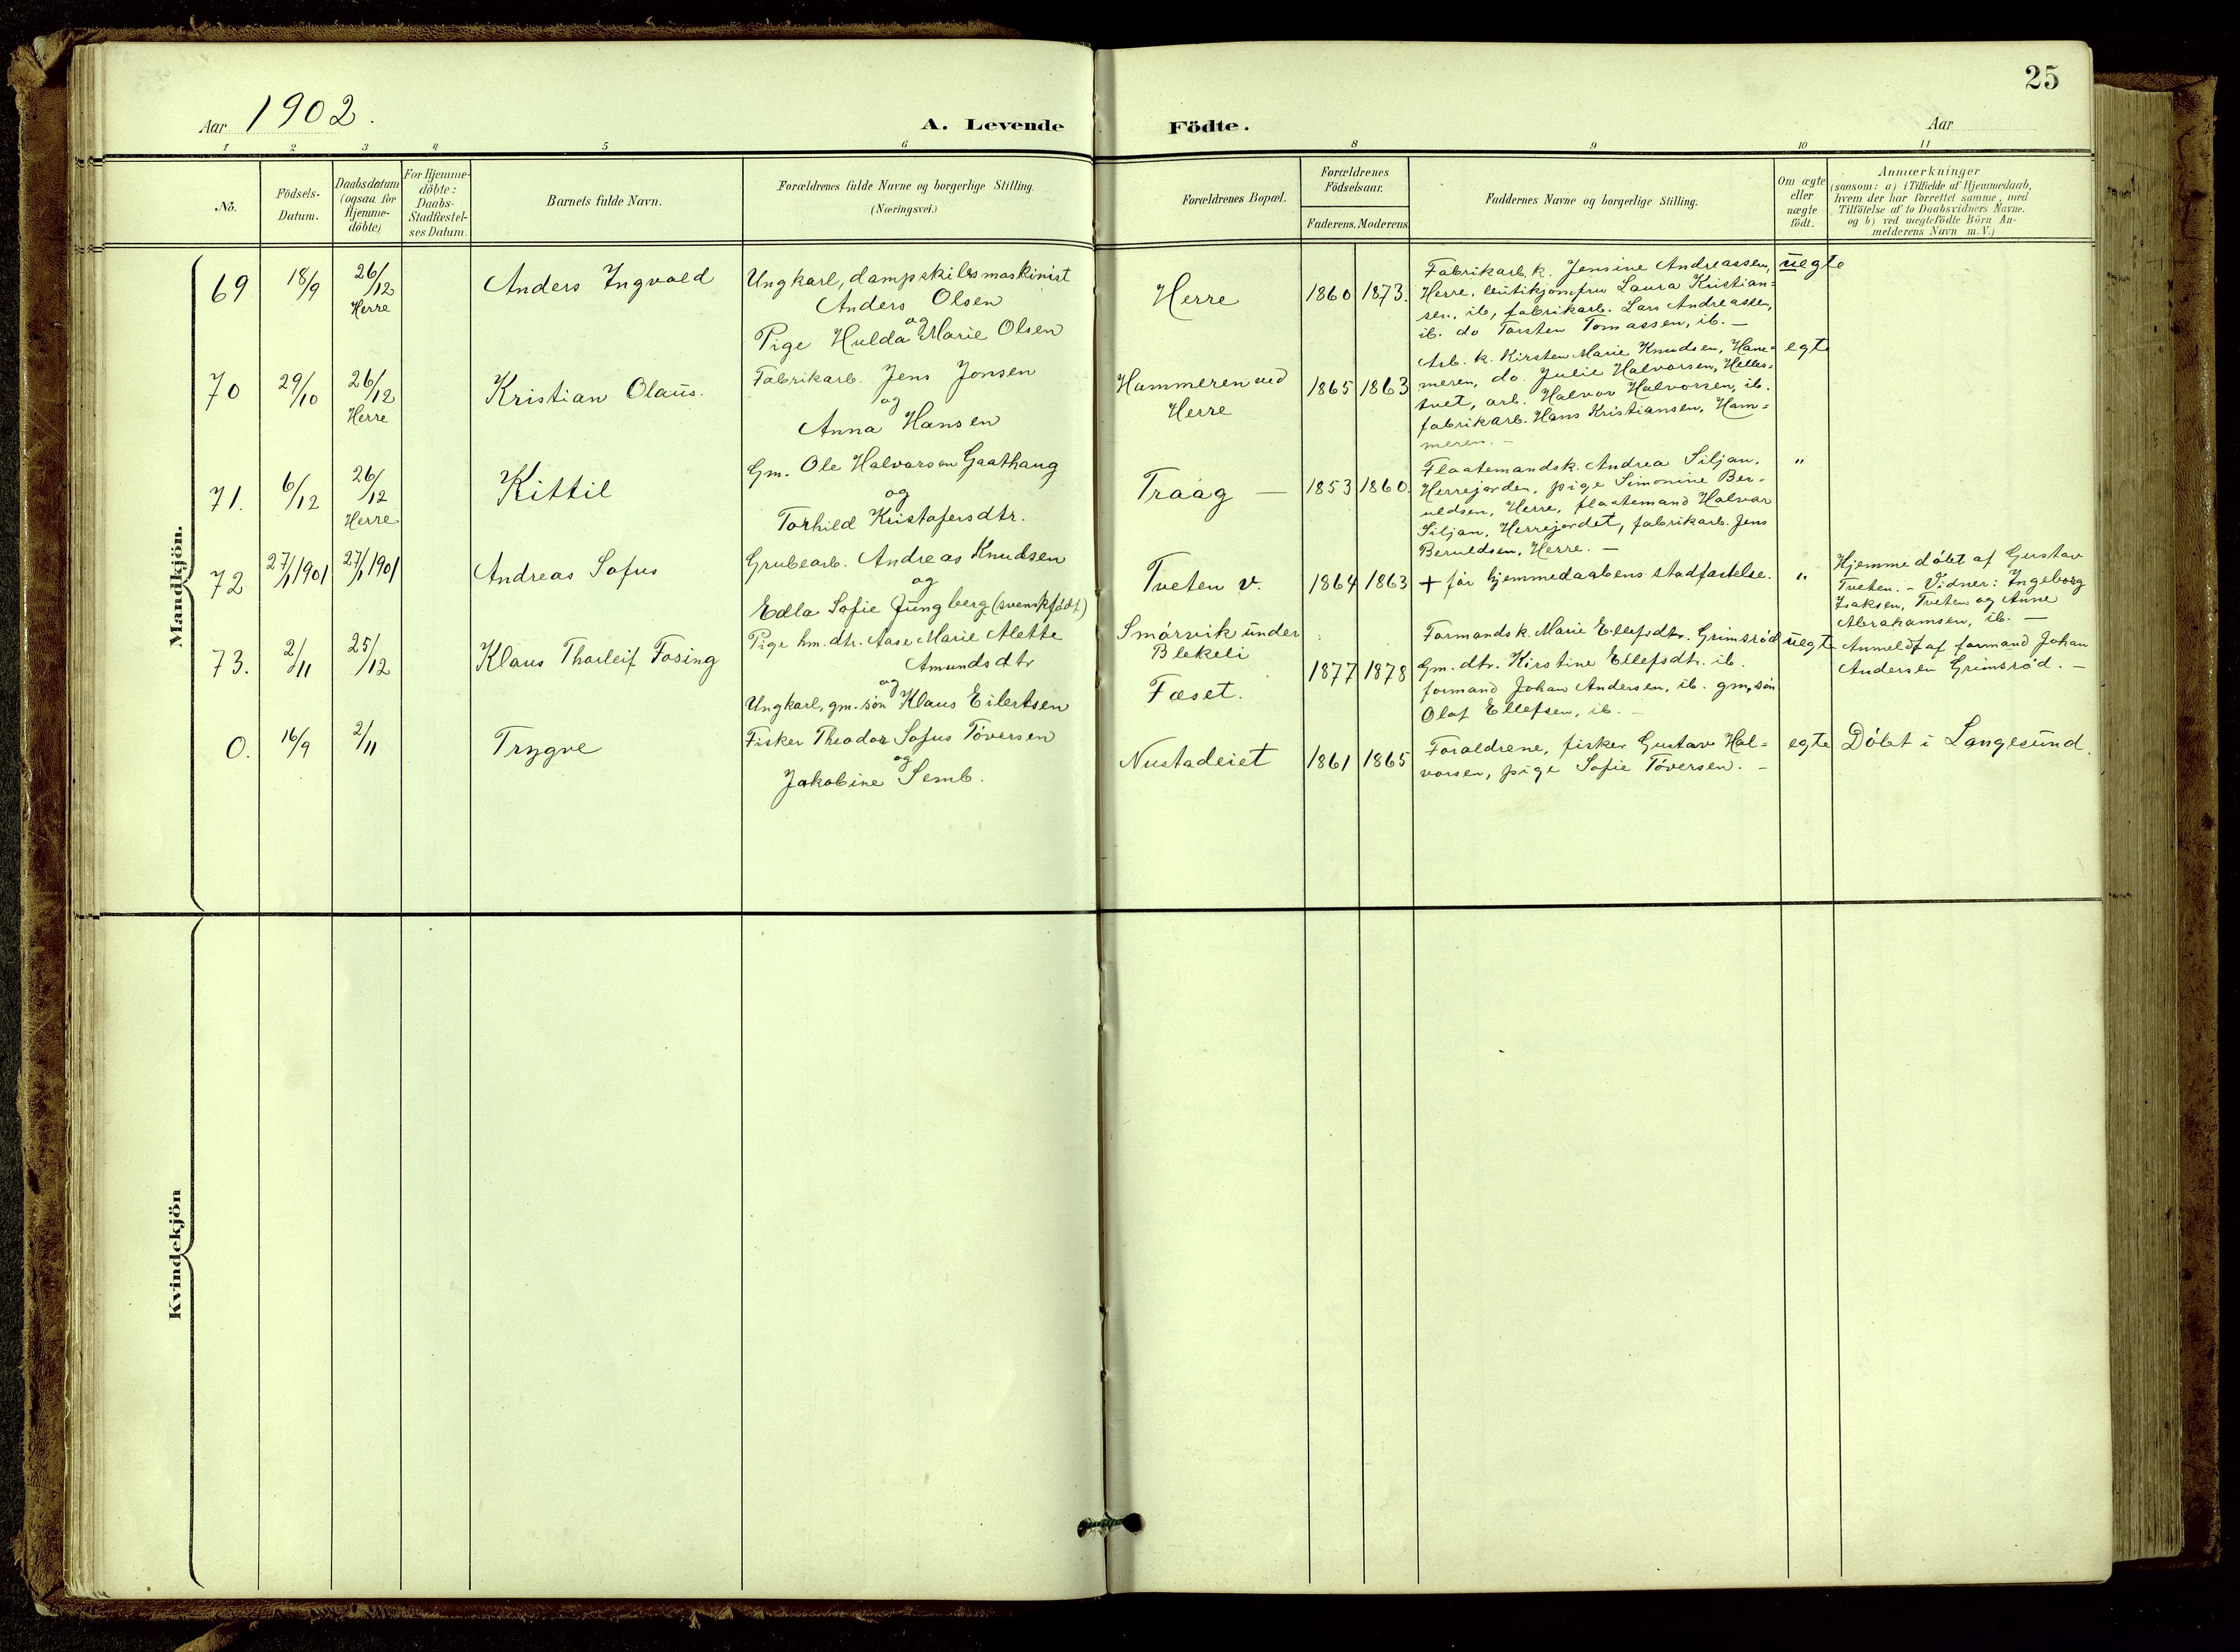 25
Aar 1902.
A. Levende Födte.
Aar
1 2 3 4 5 6 8 9 10 11
No.
Födsels-
Datum.
Daabsdatum
(ogsaa for
Hjemme-
döbte)
For Hjemme-
döbte:
Daabs-
Stadfæstel-
ses Datum.
Barnets fulde Navn.
Forældrenes fulde Navne og borgerlige Stilling.
(Næringsvei.)
Forældrenes Bopæl.
Forældrenes
Födselsaar.
Faderens. Moderens.
Faddernes Navne og borgerlige Stilling.
Om ægte
eller
uægte
födt.
Anmærkninger
(saasom: a) i Tilfælde af Hjemmedaab,
hvem der har forrettet samme, med
Tilföielse af to Daabsvidners Navne.
og b) ved uægtefödte Börn An-
melderens Navn m.V.)
Mandkjön.
69
18/9
26/12
Herre
Anders Ingvald
Ungkarl, dampskibsmaskinist
Anders Olsen
og
Pige Hulda Marie Olsen
Herre
1860 1873.
Fabrikarb. k. Jensine Andreassen,
Herre, butikjomfru Laura Kristian=
sen, ib, fabrikarb. Lars Andreassen,
ib. do Torsten Tomassen, ib. —
uegte
70
29/10
26/12
Herre
Kristian Olaus.
Fabrikarb. Jens Jonsen
og
Anna Hansen
Hammeren ved
Herre
1865 1863
Arb. k. Kirsten Marie Knudsen, Ham=
meren, do. Julie Halvorsen, Helles=
tvet, arb. Halvor Halvorsen, ib.
fabrikarb. Hans Kristiansen, Ham=
meren. —
egte
71.
6/12
26/12
Herre
Kittil
Gm. Ole Halvorsen Gaathaug
og
Torhild Kristofersdtr.
Traag —
1853 1860.
Flaatemandsk. Andrea Siljan,
Herrejordet, pige Simonine Ber-
uldsen, Herre, flaatemand Halvor
Siljan, Herrejordet, fabrikarb. Jens
Beruldsen, Herre. —
"
72
27/1 1901
27/1 1901
Andreas Sofus
Grubearb. Andreas Knudsen
og
Edla Sofie Jungberg (svenskfødt)
Tveten v.
1864 1863
+ før hjemmedaabens stadfæstelse.
"
Hjemmedøbt af Gustav
Tveten. — Vidner: Ingeborg
Isaksen, Tveten og Anne
Abrahamsen, ib. —
73.
2/11
25/12
Klaus Thorleif Fosing
Pige hm. dtr. Aase Marie Alette
Amundsdtr
og
Ungkarl, gm. søn Klaus Eilertsen
Smørvik under
Blekeli
Fæset.
1877 1878
Formands k. Marie Ellefsdtr. Grimsrød
Gm. dtr. Kirstine Ellefsdtr. ib.
formand Johan Andersen, ib. gm. søn
Olaf Ellefsen, ib. —
uegte
Anmeldt af formand Johan
Andersen Grimsrød. —
0.
16/9
2/11
Trygve
Fisker Theodor Sofus Tøversen
og
Jakobine Semb.
Nustadeiet
1861 1865
Foraldrene, fisker Gustav Hal=
vorsen, pige Sofie Tøversen. —
egte
Døbt i Langesund.
Kvindekjön